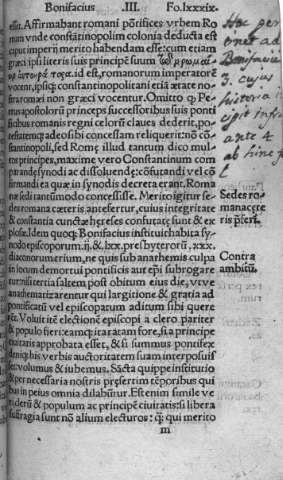 Bonifacius .III. Fo.lxxxix.
esset. Affirmabant romani pōtifices vrbem Ro
man vnde constātinopolim colonia deducta est
caput imperij merito habendam esse: cum etiam
græci ipsi literis suis principē suum
id est, romanorum imperatorē
vocent, ipsosq; constantinopolitani etiā ætate no
stra romæi non græci vocentur. Omitto q; Pe
trus apostolorū princeps successoribus suis ponti
ficibus romanis regni cælorū claues dederit, po
testatemq; a deo sibi concessam reliquerit: nō cō
stantinopoli, sed Romę illud tantum dico mul
tos principes, maxime vero Constantinum com
parandę synodi ac dissoluendę: cōfutandi vel cō
firmandi ea quæ in synodis decreta erant. Roma
næ sedi tantūmodo concessisse. Merito igitur se
des romana ceteris antefertur, cuius integritate
& constantia cunctæ hereses confutatę sunt & ex
plosę. Idem quoq; Bonifacius instituit habita sy
nodo episcoporum .ij. & .lxx. presbyterorū .xxx.
diaconorumque trium, ne quis sub anathemis culpa
in locum demortui pontificis aut epi subrogare
tur nisi tertia saltem post obitum eius die, vtve
anathematizarentur qui largitione & gratia ad
pontificatū vel episcopatum aditum sibi quere
rēt. Voluit itē electionē episcopi a clero pariter
& populo fieri: eamq; ita ratam fore, si a principe
ciuitatis approbata esset, & si summus pontifex
denique his verbis auctoritatem suam interposuis
set: volumus & iubemus. Sācta quippe institutio
& per necessaria nostris pręsertim tēporibus qui
bus in peius omnia dilabūtur. Est enim simile ve
ri clerū & populum ac principē ciuitatis: si libera
suffragia sunt nō alium electuros: q; qui merito
m
Sedes ro
mana cęte
ris p̄fert.
Contra
ambitū.
Hoc per
ad
Bonifaciū
3. cuius
historia in
cipit infra
4
ab hinc